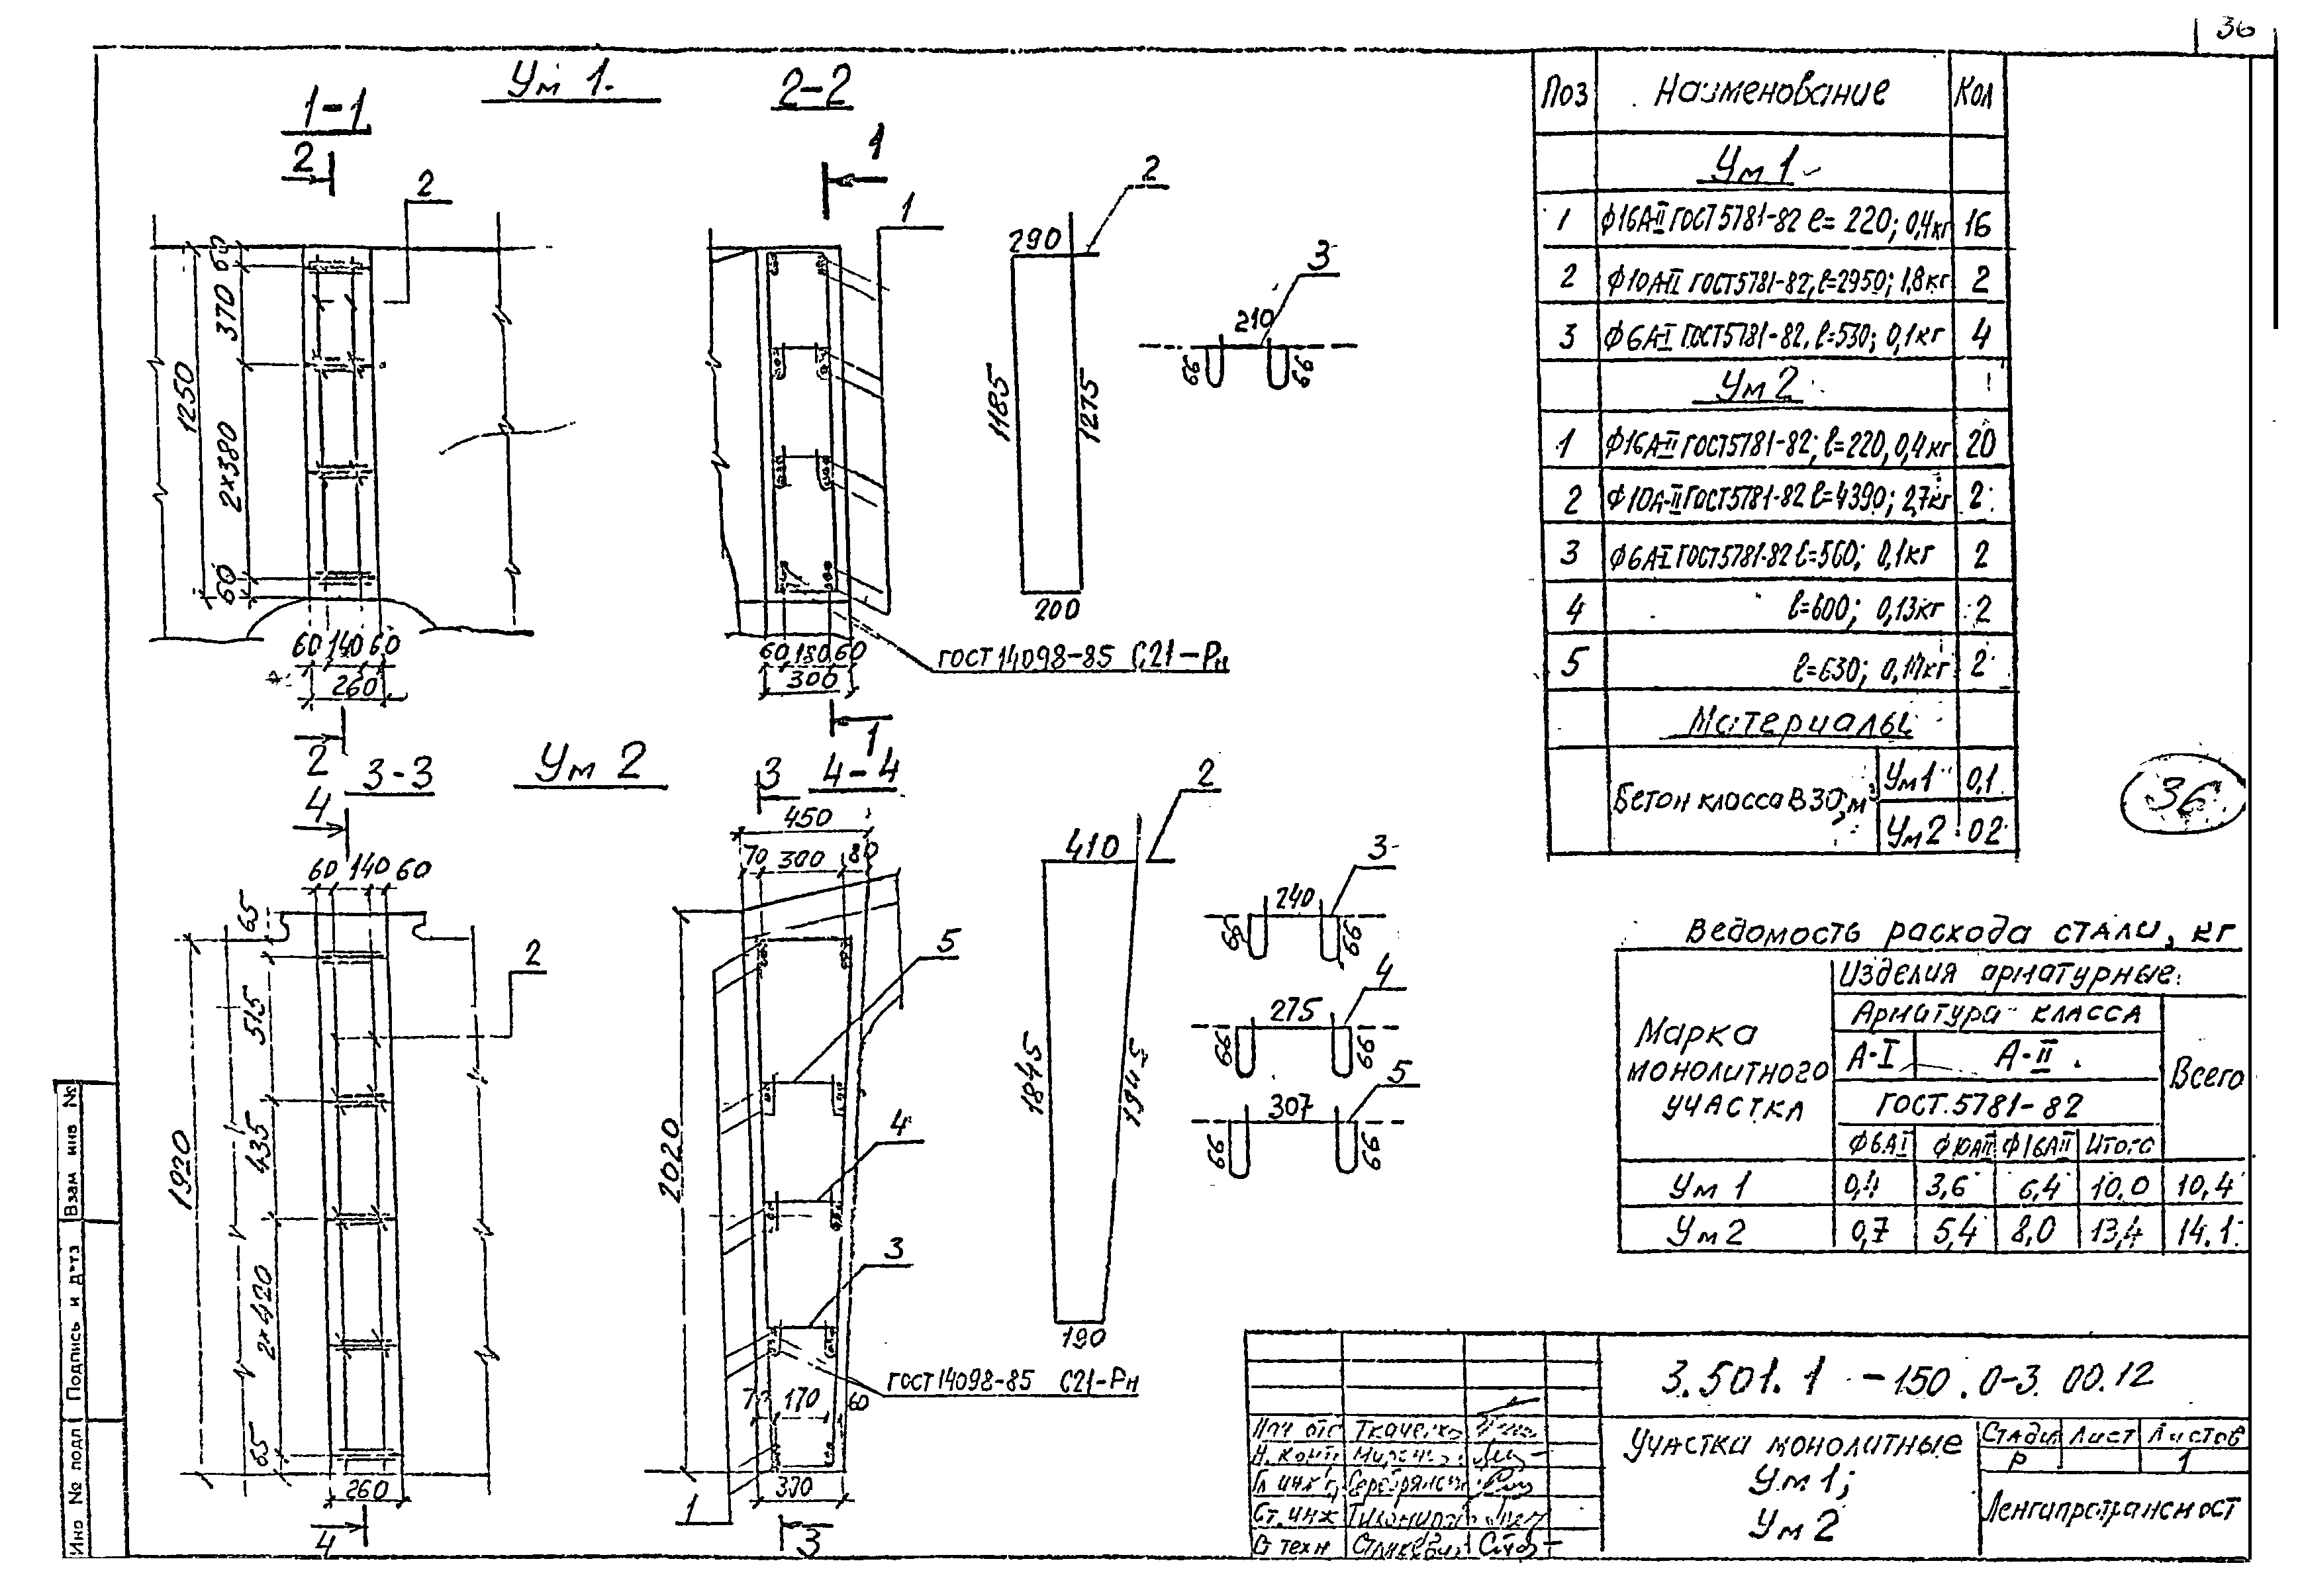 36
Ум 1.
1-1
2-2
2
2
1
1
2
290
1185
1275
200
3
210
66
66
60
370
1250
2×380
60
60 140 60
260
60 180 60
300
ГОСТ 14098-85 С21-Рн
2
1
Ум 2
3-3
4-4
4
3
2
450
70 300 80
410
60 140 60
65
515
435
1920
2×420
65
260
4
2
2020
5
4
3
1845
1945
190
3
240
66
66
4
275
66
66
5
307
66
66
ГОСТ 14098-85 С21-Рн
170 60
1
3
Поз Наименование Кол
Ум 1
1 ф16А-II ГОСТ 5781-82 ℓ= 220; 0,4кг 16
2 ф10А-II ГОСТ 5781-82, ℓ=2950; 1,8кг 2
3 ф6А-I ГОСТ 5781-82, ℓ=530; 0,1кг 4
Ум 2
1 ф16А-II ГОСТ 5781-82; ℓ=220, 0,4кг 20
2 ф10А-II ГОСТ 5781-82 ℓ=4390; 2,7кг 2
3 ф6А-I ГОСТ 5781-82 ℓ=560; 0,1кг 2
4 ℓ=600; 0,13кг 2
5 ℓ=630; 0,14кг 2
Материалы
Бетон класса В30, м³ Ум1 0,1
Ум2 02
36
Ведомость расхода стали, кг
Марка монолитного участка
Изделия арматурные
Арматура класса
А-I А-II Всего
ГОСТ 5781-82
ф6АI ф10АII ф16АII Итого
Ум 1 0,4 3,6 6,4 10,0 10,4
Ум 2 0,7 5,4 8,0 13,4 14.1
3.501.1-150.0-3.00.12
Нач отд Ткаченко
Н. конт
Гл инж п
Ст. инж
Ст техн
Участки монолитные
Ум 1;
Ум 2
Стадия Лист Листов
Р 1
Ленгипротрансмост
Взам инв №
Подпись и дата
Инв № подл